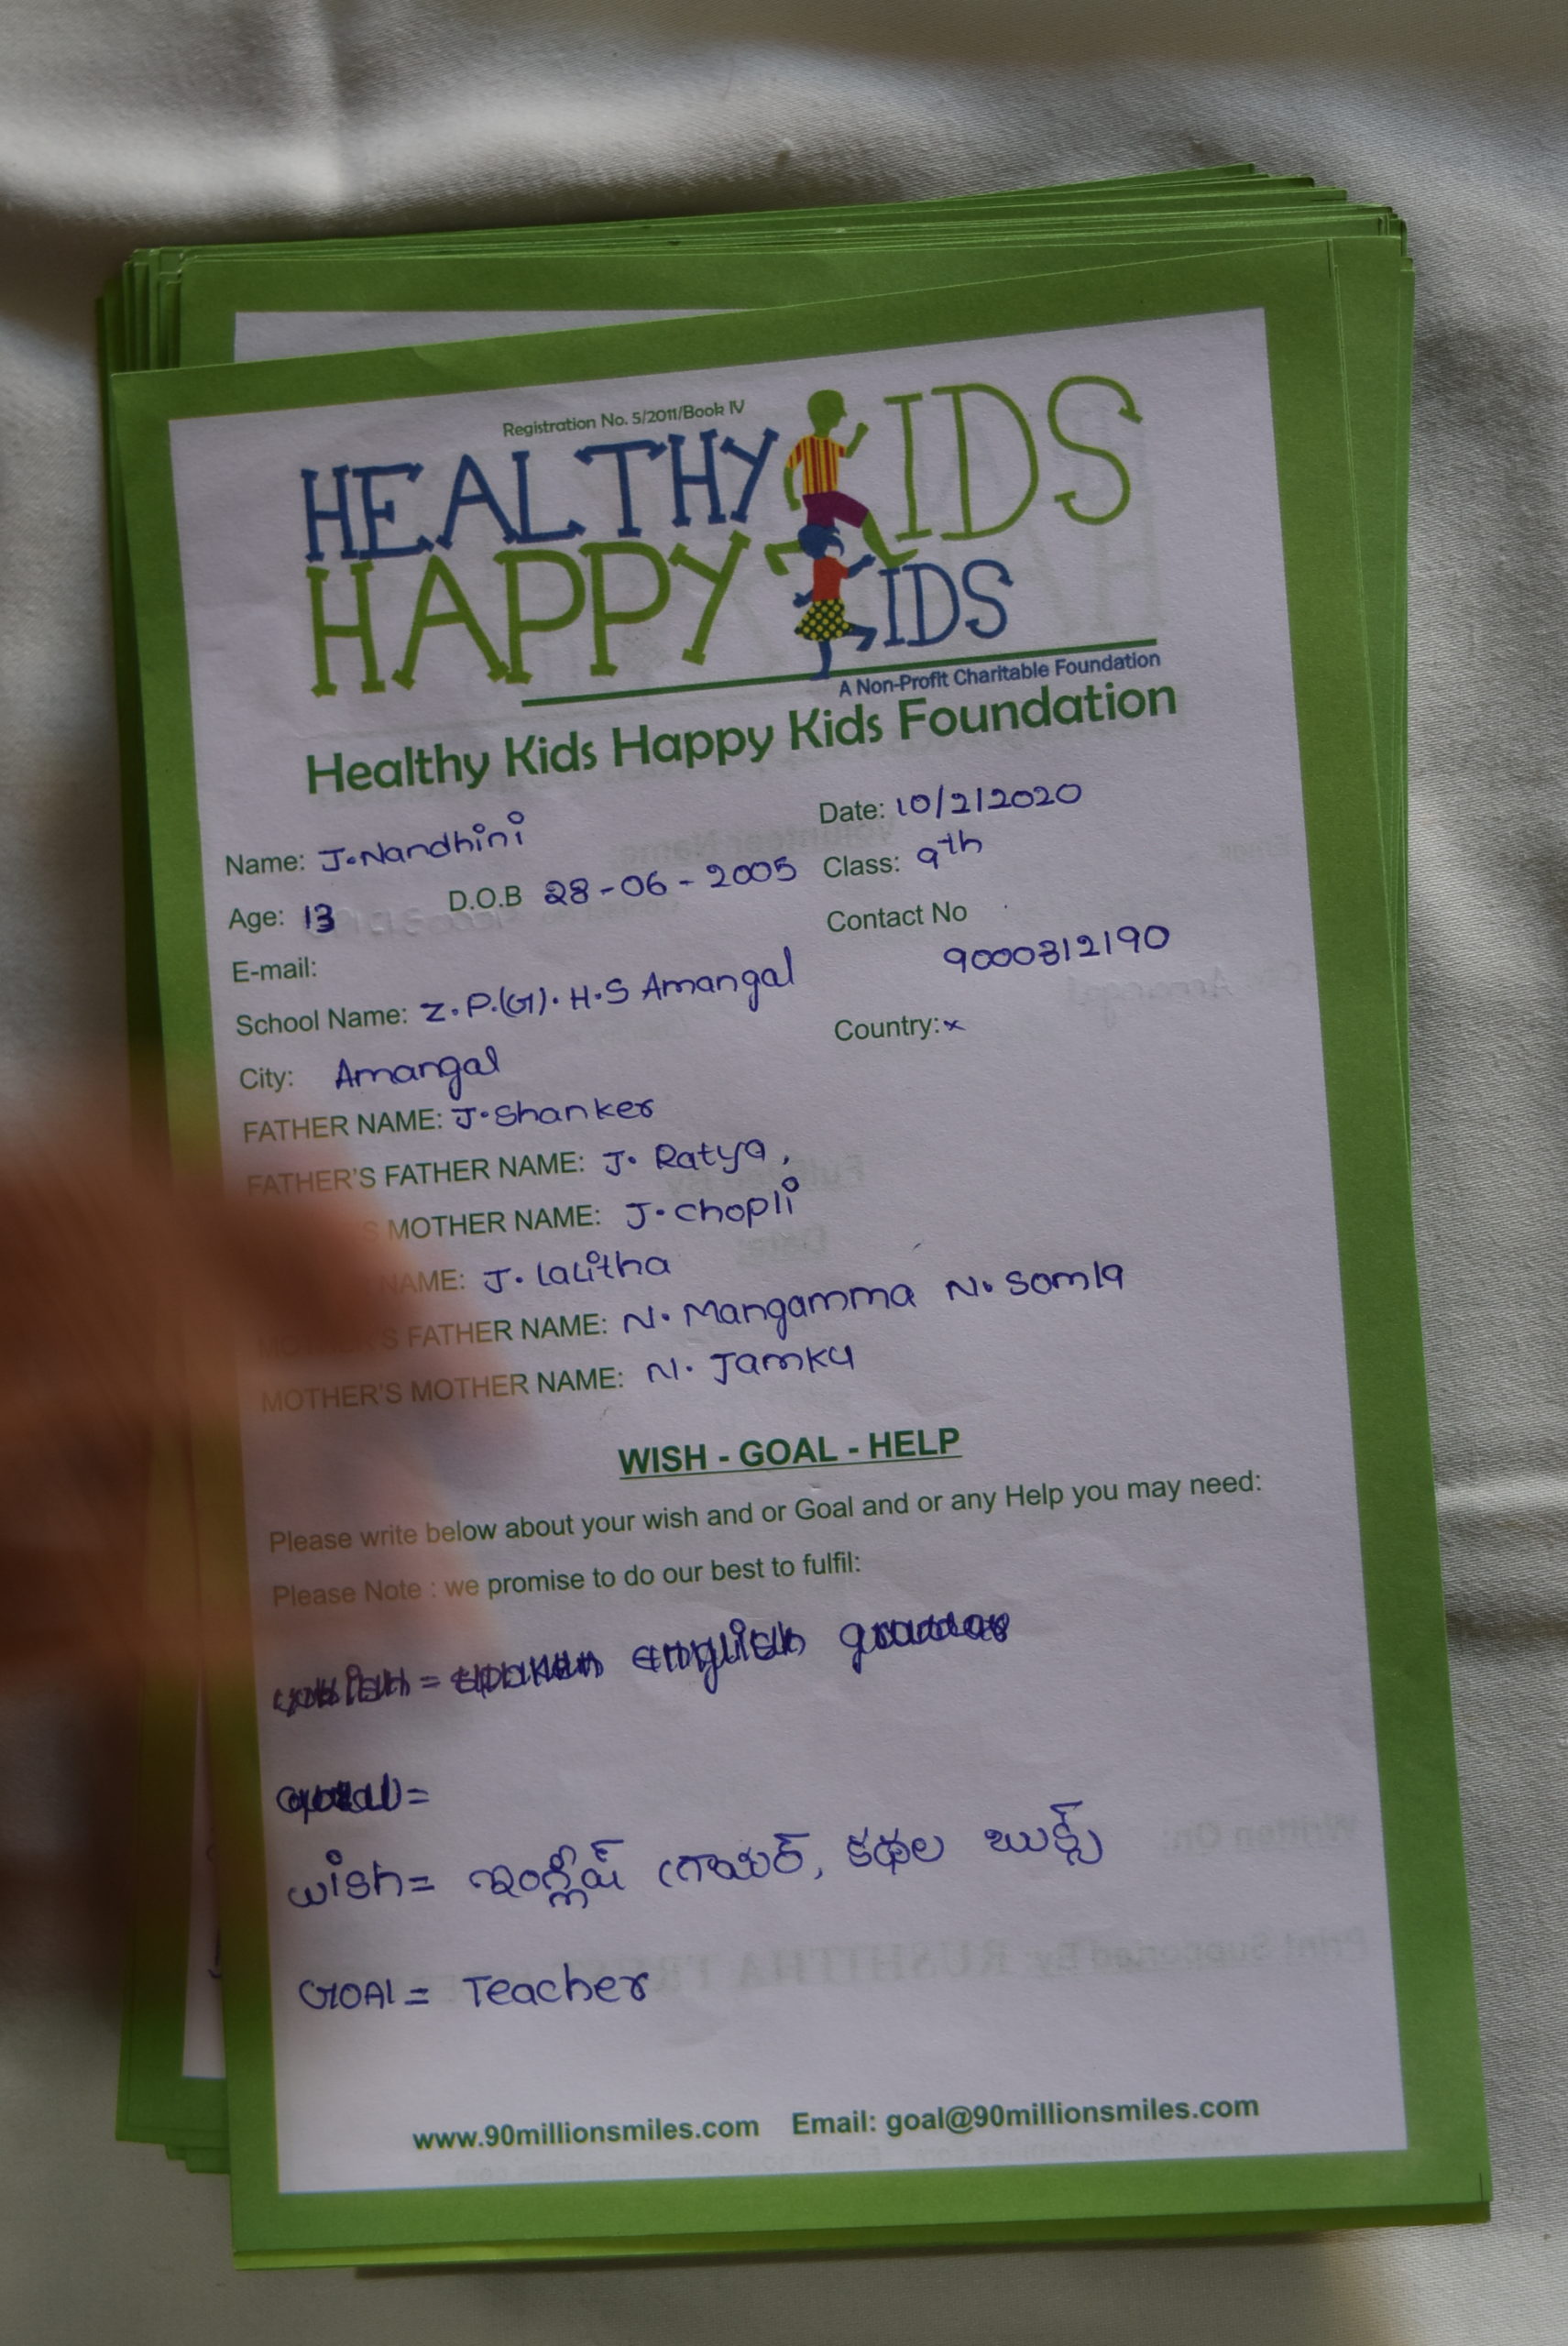 Registration No. 5/2011/Book IV
HEALTHY KIDS
HAPPY KIDS
A Non-Profit Charitable Foundation
Healthy Kids Happy Kids Foundation
Date: 10/2/2020
Name: J.Nandhini
Age: 13 D.O.B 28-06-2005 Class: 9th
E-mail: Contact No
9000312190
School Name: Z.P.(G).H.S Amangal
City: Amangal Country: x
FATHER NAME: J.Shanker
FATHER'S FATHER NAME: J. Ratya,
MOTHER NAME: J.chopli
NAME: J.Lalitha
MOTHER'S FATHER NAME: N. Mangamma N. Somla
MOTHER'S MOTHER NAME: N. Jamku
WISH - GOAL - HELP
Please write below about your wish and or Goal and or any Help you may need:
Please Note : we promise to do our best to fulfil:
wish = spoken english
goal =
wish = ఇంగ్లీష్ గ్రామర్, కథల బుక్స్
GOAl = Teacher
www.90millionsmiles.com Email: goal@90millionsmiles.com